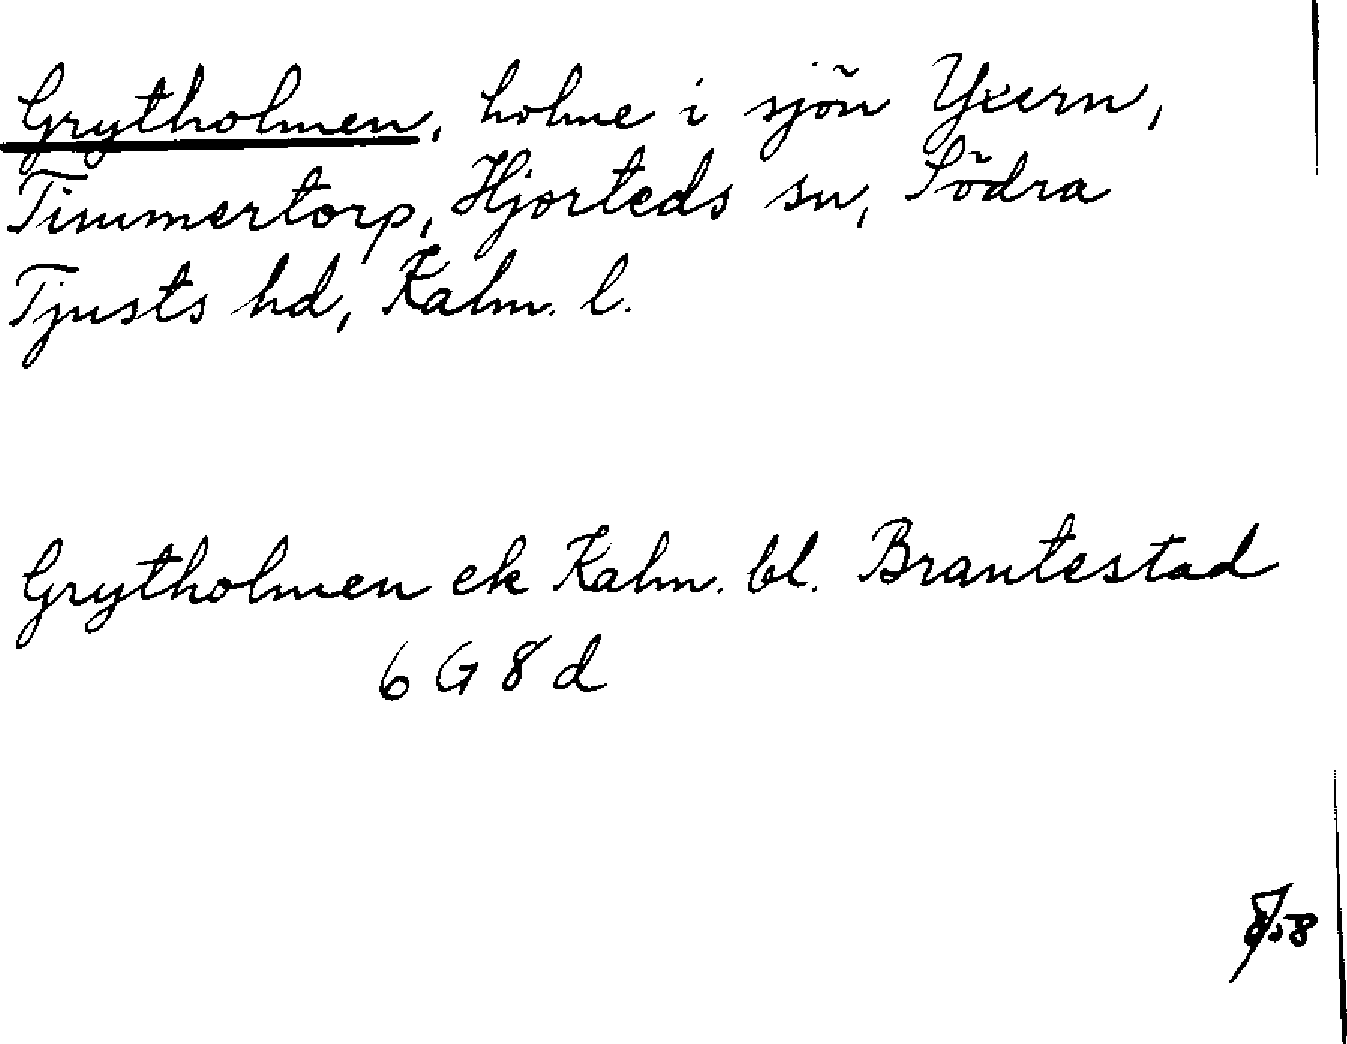 Grytholmen, holme i sjön Yxern,
Timmertorp, Hjorteds sn, Södra
Tjusts hd, Kalm. l.
Grytholmen ek Kalm. bl. Brantestad
6 G 8 d